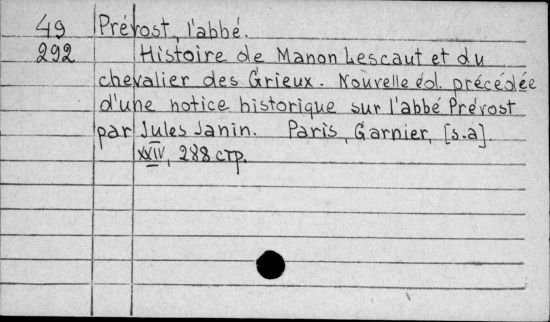 49 Prévost, l'abbé.
292 Histoire de Manon Lescaut et du
chevalier des Grieux. Nouvelle éd. précédée
d'une notice historique sur l'abbé Prévost
par Jules Janin. Paris, Garnier, [s.a].
XXIV, 288 стр.